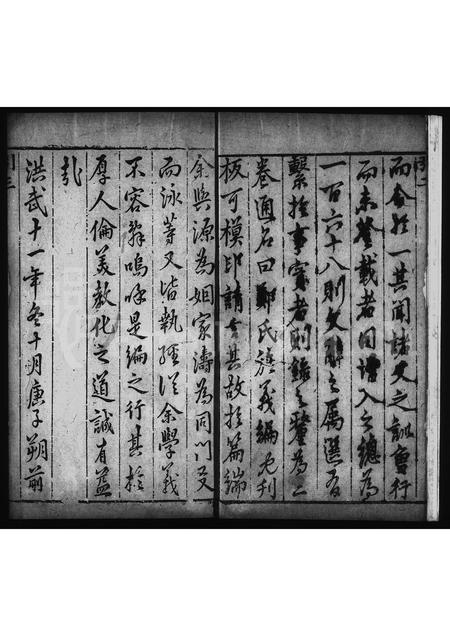 而合於一其聞諸父之訓會行
而未登載者因增入之總為
一百六十八則文辭之屬選有
繫於事實者則錄之釐為二
卷通名曰鄭氏旌義編先刊
板可模印請言其故於篇端
余與源為姻家濤為同門友
而泳等又皆執經從余學義
不容辭嗚呼是編之行其於
厚人倫美教化之道誠有益
哉
洪武十一年冬十月庚子朔前